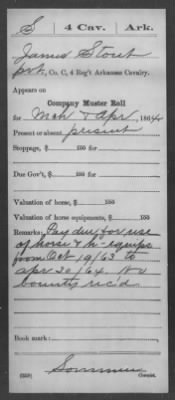 S | 4 Cav. | Ark.
James Stout
Pvt, Co. C, 4 Reg't Arkansas Cavalry.
Appears on
Company Muster Roll
for Mch & Apr, 1864
Present or absent present
Stoppage, $ 100 for
Due Gov't, $ 100 for
Valuation of horse, $ 100
Valuation of horse equipments, $ 100
Remarks: Pay due for use
of horse & h- equips
from Oct 19/63 to
Apr 30/64. No
bounty rec'd.
Book mark:
(358)
Copyist.